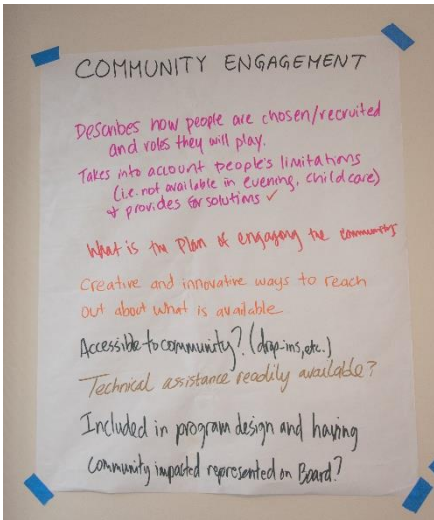 COMMUNITY ENGAGEMENT
Describes how people are chosen/recruited
and roles they will play.
Takes into account people's limitations
(i.e. not available in evening, childcare)
+ provides for solutions ✓
What is the Plan of engaging the community
Creative and innovative ways to reach
out about what is available.
Accessible to community? (drop-ins, etc.)
Technical assistance readily available?
Included in program design and having
community impacted represented on Board?